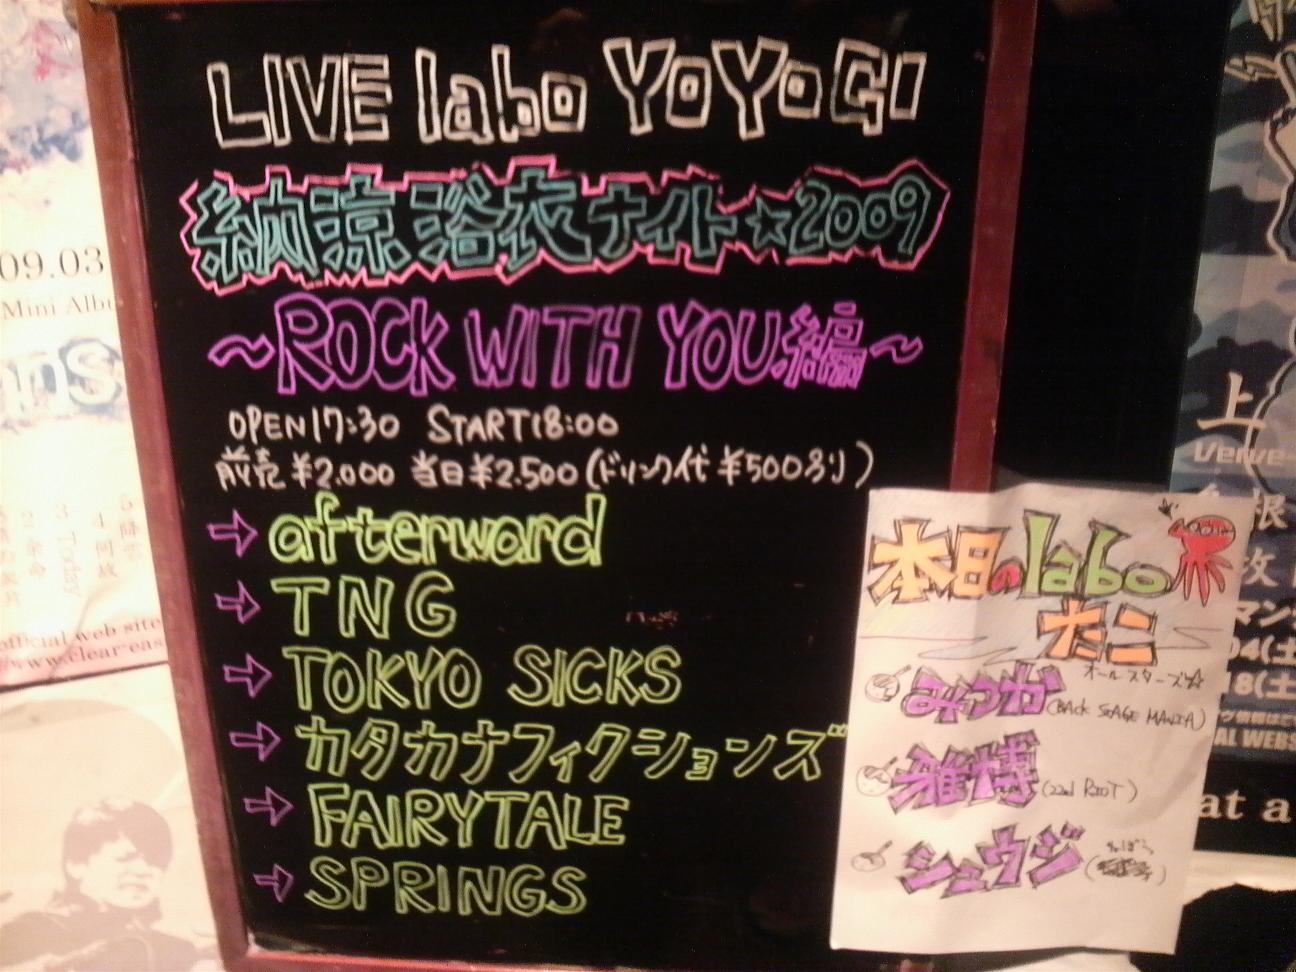 LIVE labo YOYOGI
納涼浴衣ナイト☆2009
～ROCK WITH YOU編～
OPEN 17:30 START 18:00
前売 ¥2.000 当日 ¥2.500 (ドリンク代 ¥500あり)
⇨ afterword
⇨ TNG
⇨ TOKYO SICKS
⇨ カタカナフィクションズ
⇨ FAIRYTALE
⇨ SPRINGS
本日のlabo
たこ
オールスターズ☆
みつか (BACK STAGE MANIA)
雑博 (22nd RIOT)
シュウジ
09.03
Mini Albu
ns
5
4
3 Today
2
official web site
www.clear-eas
上
Verve-
根
マン
04(土
18(土
AL WEBS
at a